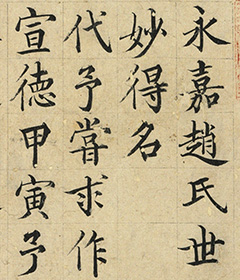 永嘉趙氏世
妙得名
代予嘗求作
宣德甲寅予